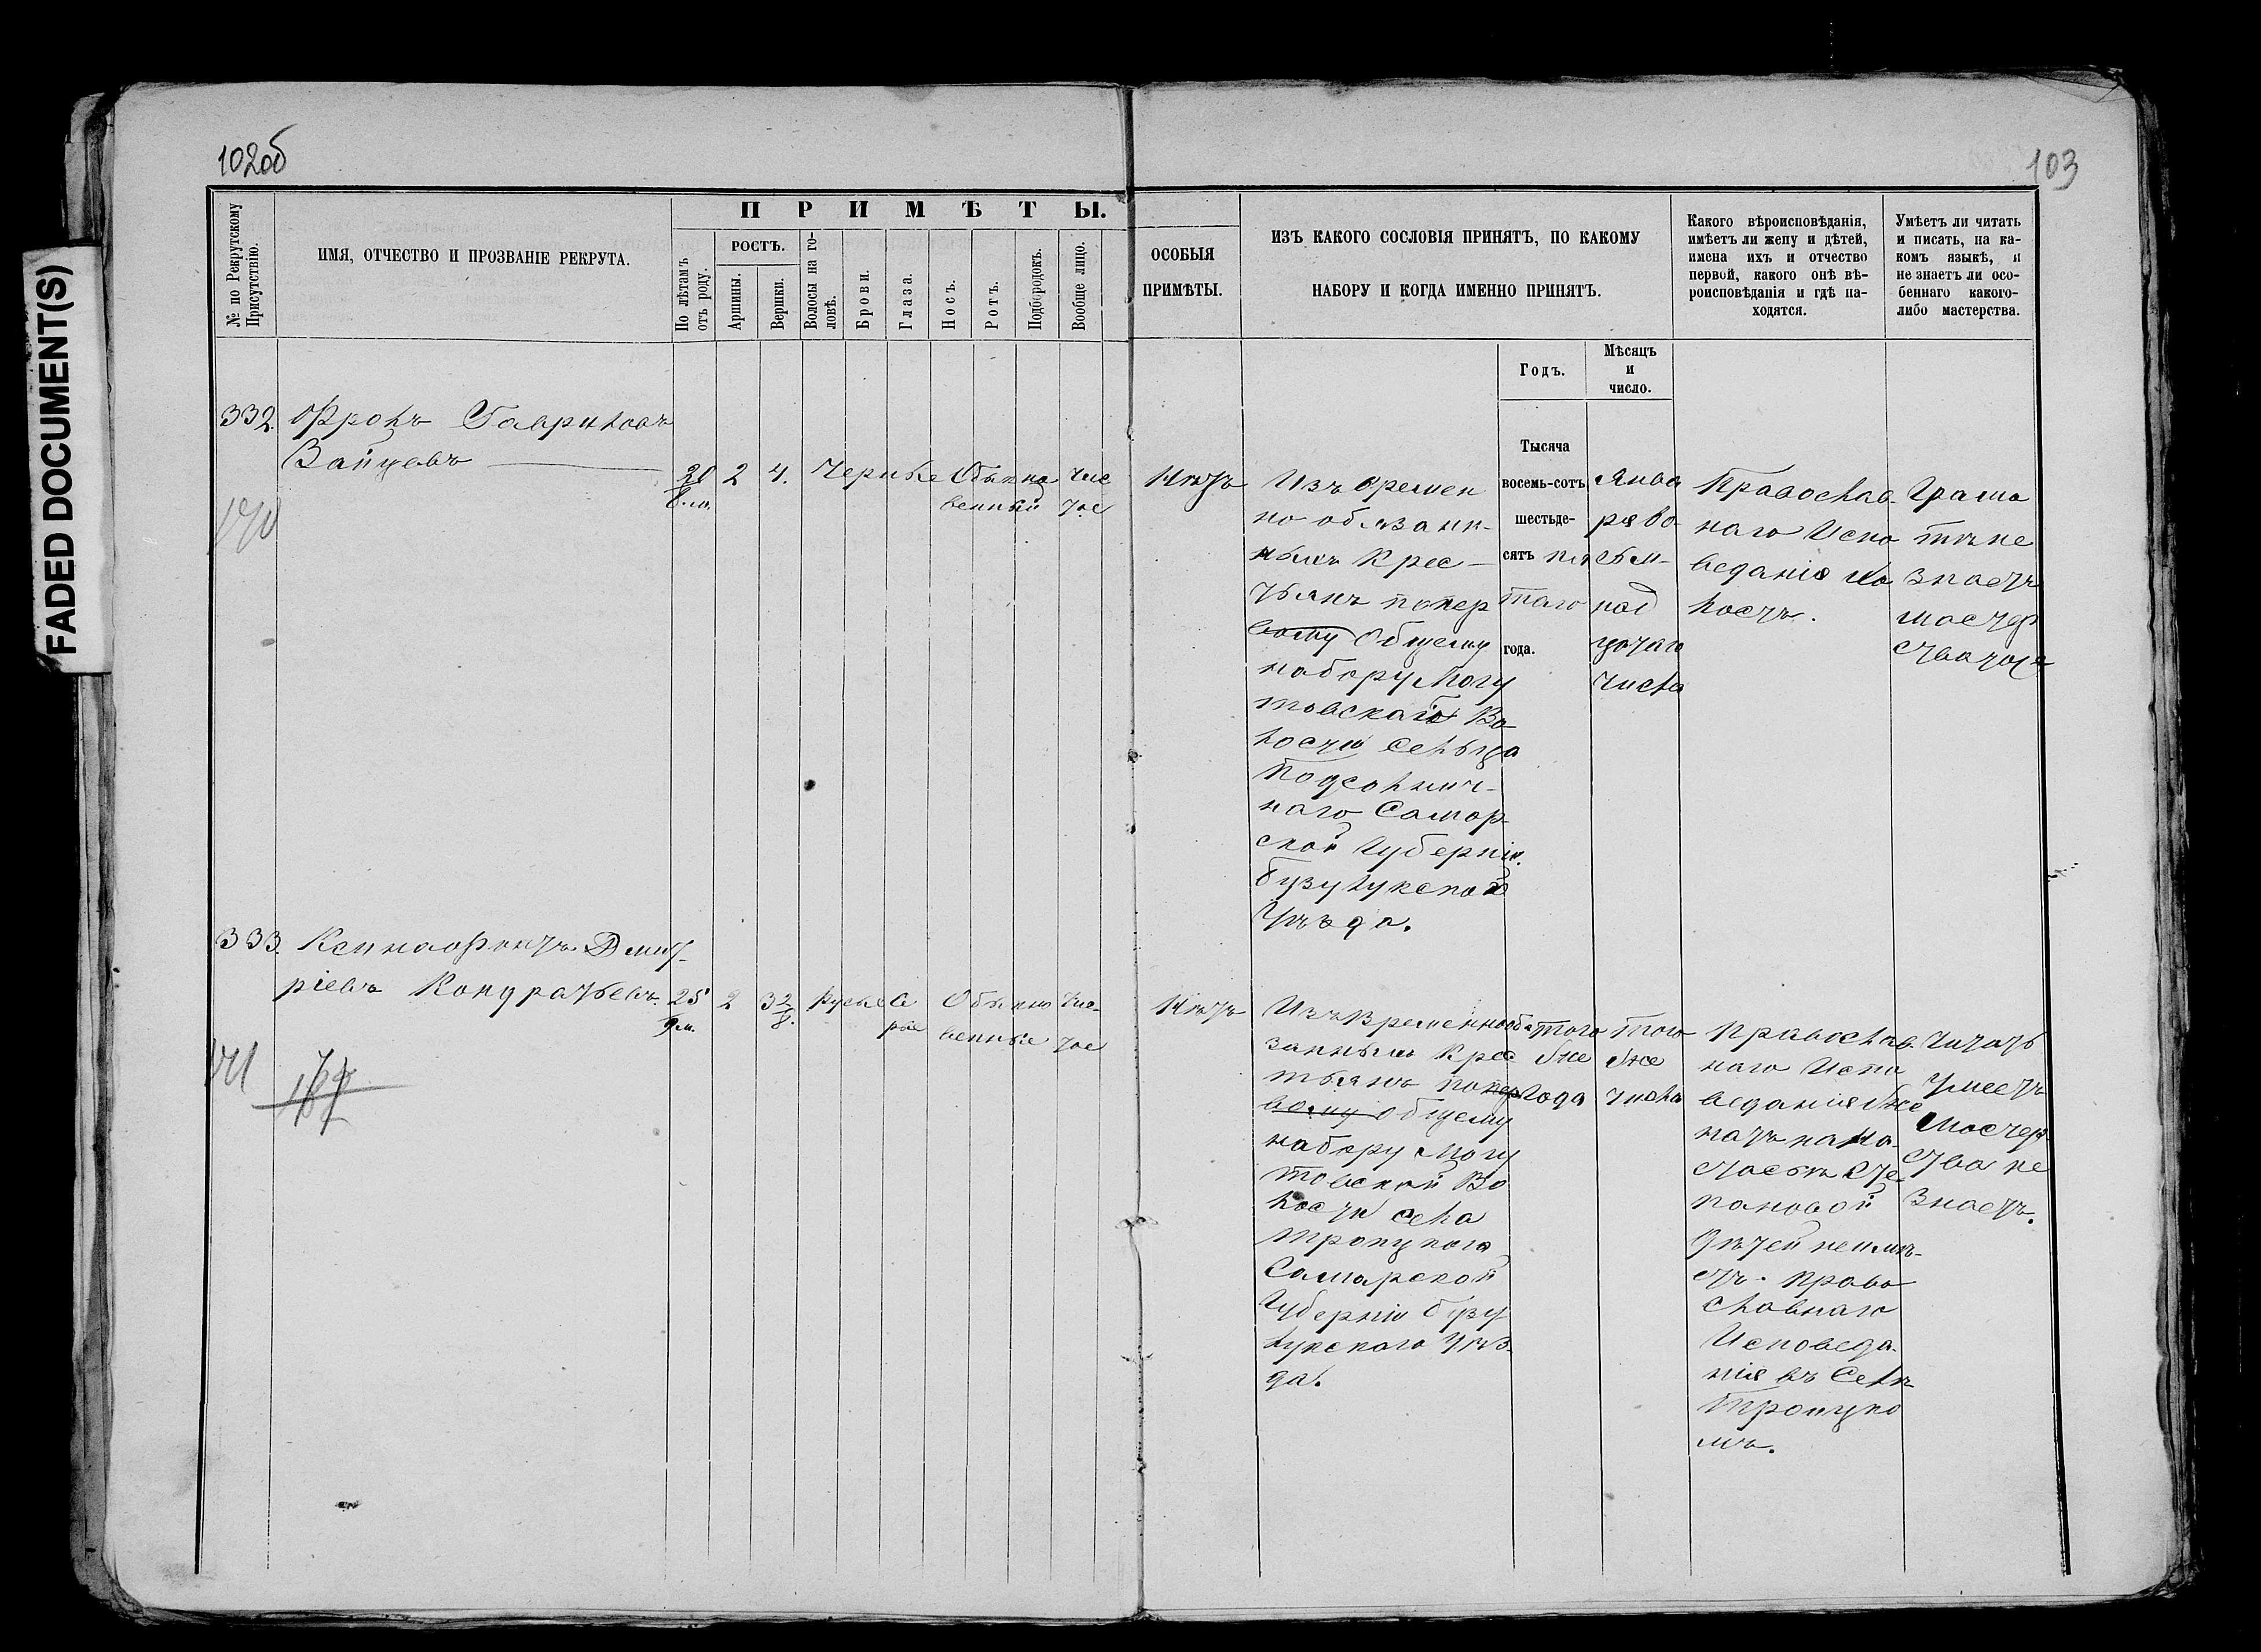 FADED DOCUMENT(S)
102об
103
№ по Рекрутскому Присутствію.
ИМЯ, ОТЧЕСТВО И ПРОЗВАНІЕ РЕКРУТА.
ПРИМѢТЫ.
По лѣтамъ отъ роду.
РОСТЪ.
Аршины.
Вершки.
Волосы на го-
ловѣ.
Брови.
Глаза.
Носъ.
Ротъ.
Подбородокъ.
Вообще лицо.
ОСОБЫЯ
ПРИМѢТЫ.
ИЗЪ КАКОГО СОСЛОВІЯ ПРИНЯТЪ, ПО КАКОМУ
НАБОРУ И КОГДА ИМЕННО ПРИНЯТЪ.
Какого вѣроисповѣданія,
имѣетъ ли жену и дѣтей,
имена ихъ и отчество
первой, какого онѣ вѣ-
роисповѣданія и гдѣ на-
ходятся.
Умѣетъ ли читать
и писать, на ка-
комъ языкѣ, и
не знаетъ ли осо-
беннаго какого-
либо мастерства.
Годъ.
Мѣсяцъ
и
число.
332.
Фролъ Гавриловъ
Зайцевъ
20
8 м.
2
4.
Черные
Обыкно
венный
Чис
тое
Нѣтъ
Изъ времен
но обязан-
ныхъ Крес-
тьянъ попер
вому Общему
набору Могу
товской Во-
лости Сельца
Подсолнич-
наго Самар-
ской Губерніи
Бузулукскаго
Уѣзда.
Тысяча
восемь-сотъ
шестьде-
сятъ пя
таго
года.
Янва
ря во
сьм-
над
цатаго
числа
Православ-
наго Испо
веданія хо
лостъ.
Грамо
тѣ не
знаетъ
мастер
ства тоже
333.
Ксенофонтъ Дмит-
ріевъ Кондратьевъ.
25
9 м.
2
3 2/8.
Русые
Се
рые
Обыкно
венные
Чис-
тое
Нѣтъ
Изъ Временнообя
занныхъ Крес
тьянъ попер
вому общему
набору Могу
товской Во
лости села
Троицкаго
Самарской
Губерніи Бузу
лукскаго Уѣз-
да.
того
же
года
того
же
числа
Православ-
наго Испо
веданія же
натъ на На-
стасьѣ Сте
пановой
дѣтей неимѣ-
етъ. Право
славнаго
Исповеда-
нія въ Селѣ
Троицко
мъ.
Читать
умеетъ
Мастер
ства не
знаетъ.